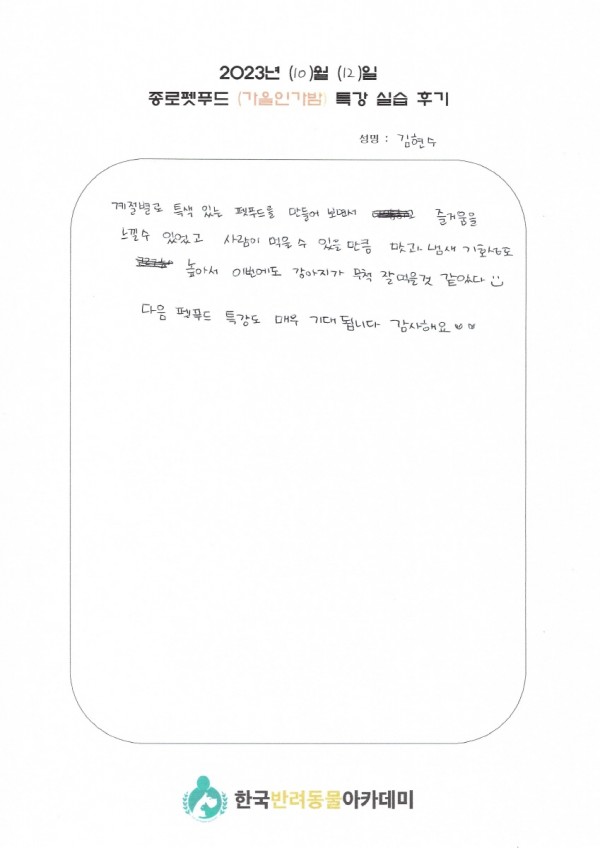 2023년 (10)월 (12)일
종로펫푸드 (가을인가밤) 특강 실습 후기
성명 : 김현수
계절별로 특색 있는 펫푸드를 만들어 보면서 즐거움을
느낄수 있었고 사람이 먹을 수 있을 만큼 맛과 냄새 기호성도
높아서 이번에도 강아지가 무척 잘먹을것 같았다
다음 펫푸드 특강도 매우 기대됩니다 감사해요
한국반려동물아카데미